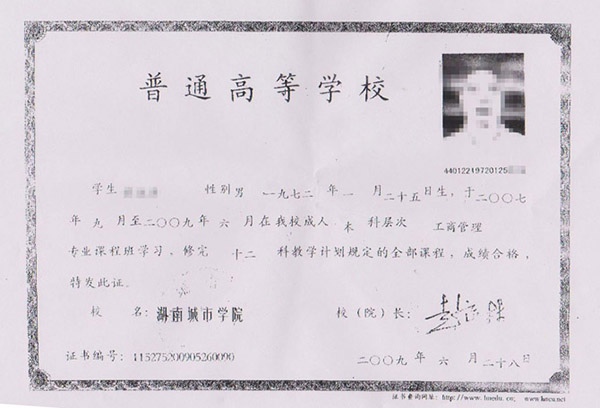 普通高等学校
44012219720125
学生 性别 男 一九七二 年 一 月 二十五日生,于二〇〇七
年 九 月至二〇〇九年 六 月在我校成人 本 科层次 工商管理
专业课程班学习,修完 十二 科教学计划规定的全部课程,成绩合格,
特发此证。
校 名:湖南城市学院
校(院)长:
证书编号:115275200905260090
二〇〇九年 六 月二十八日
证书查询网址:http://www.hnedu.cn;